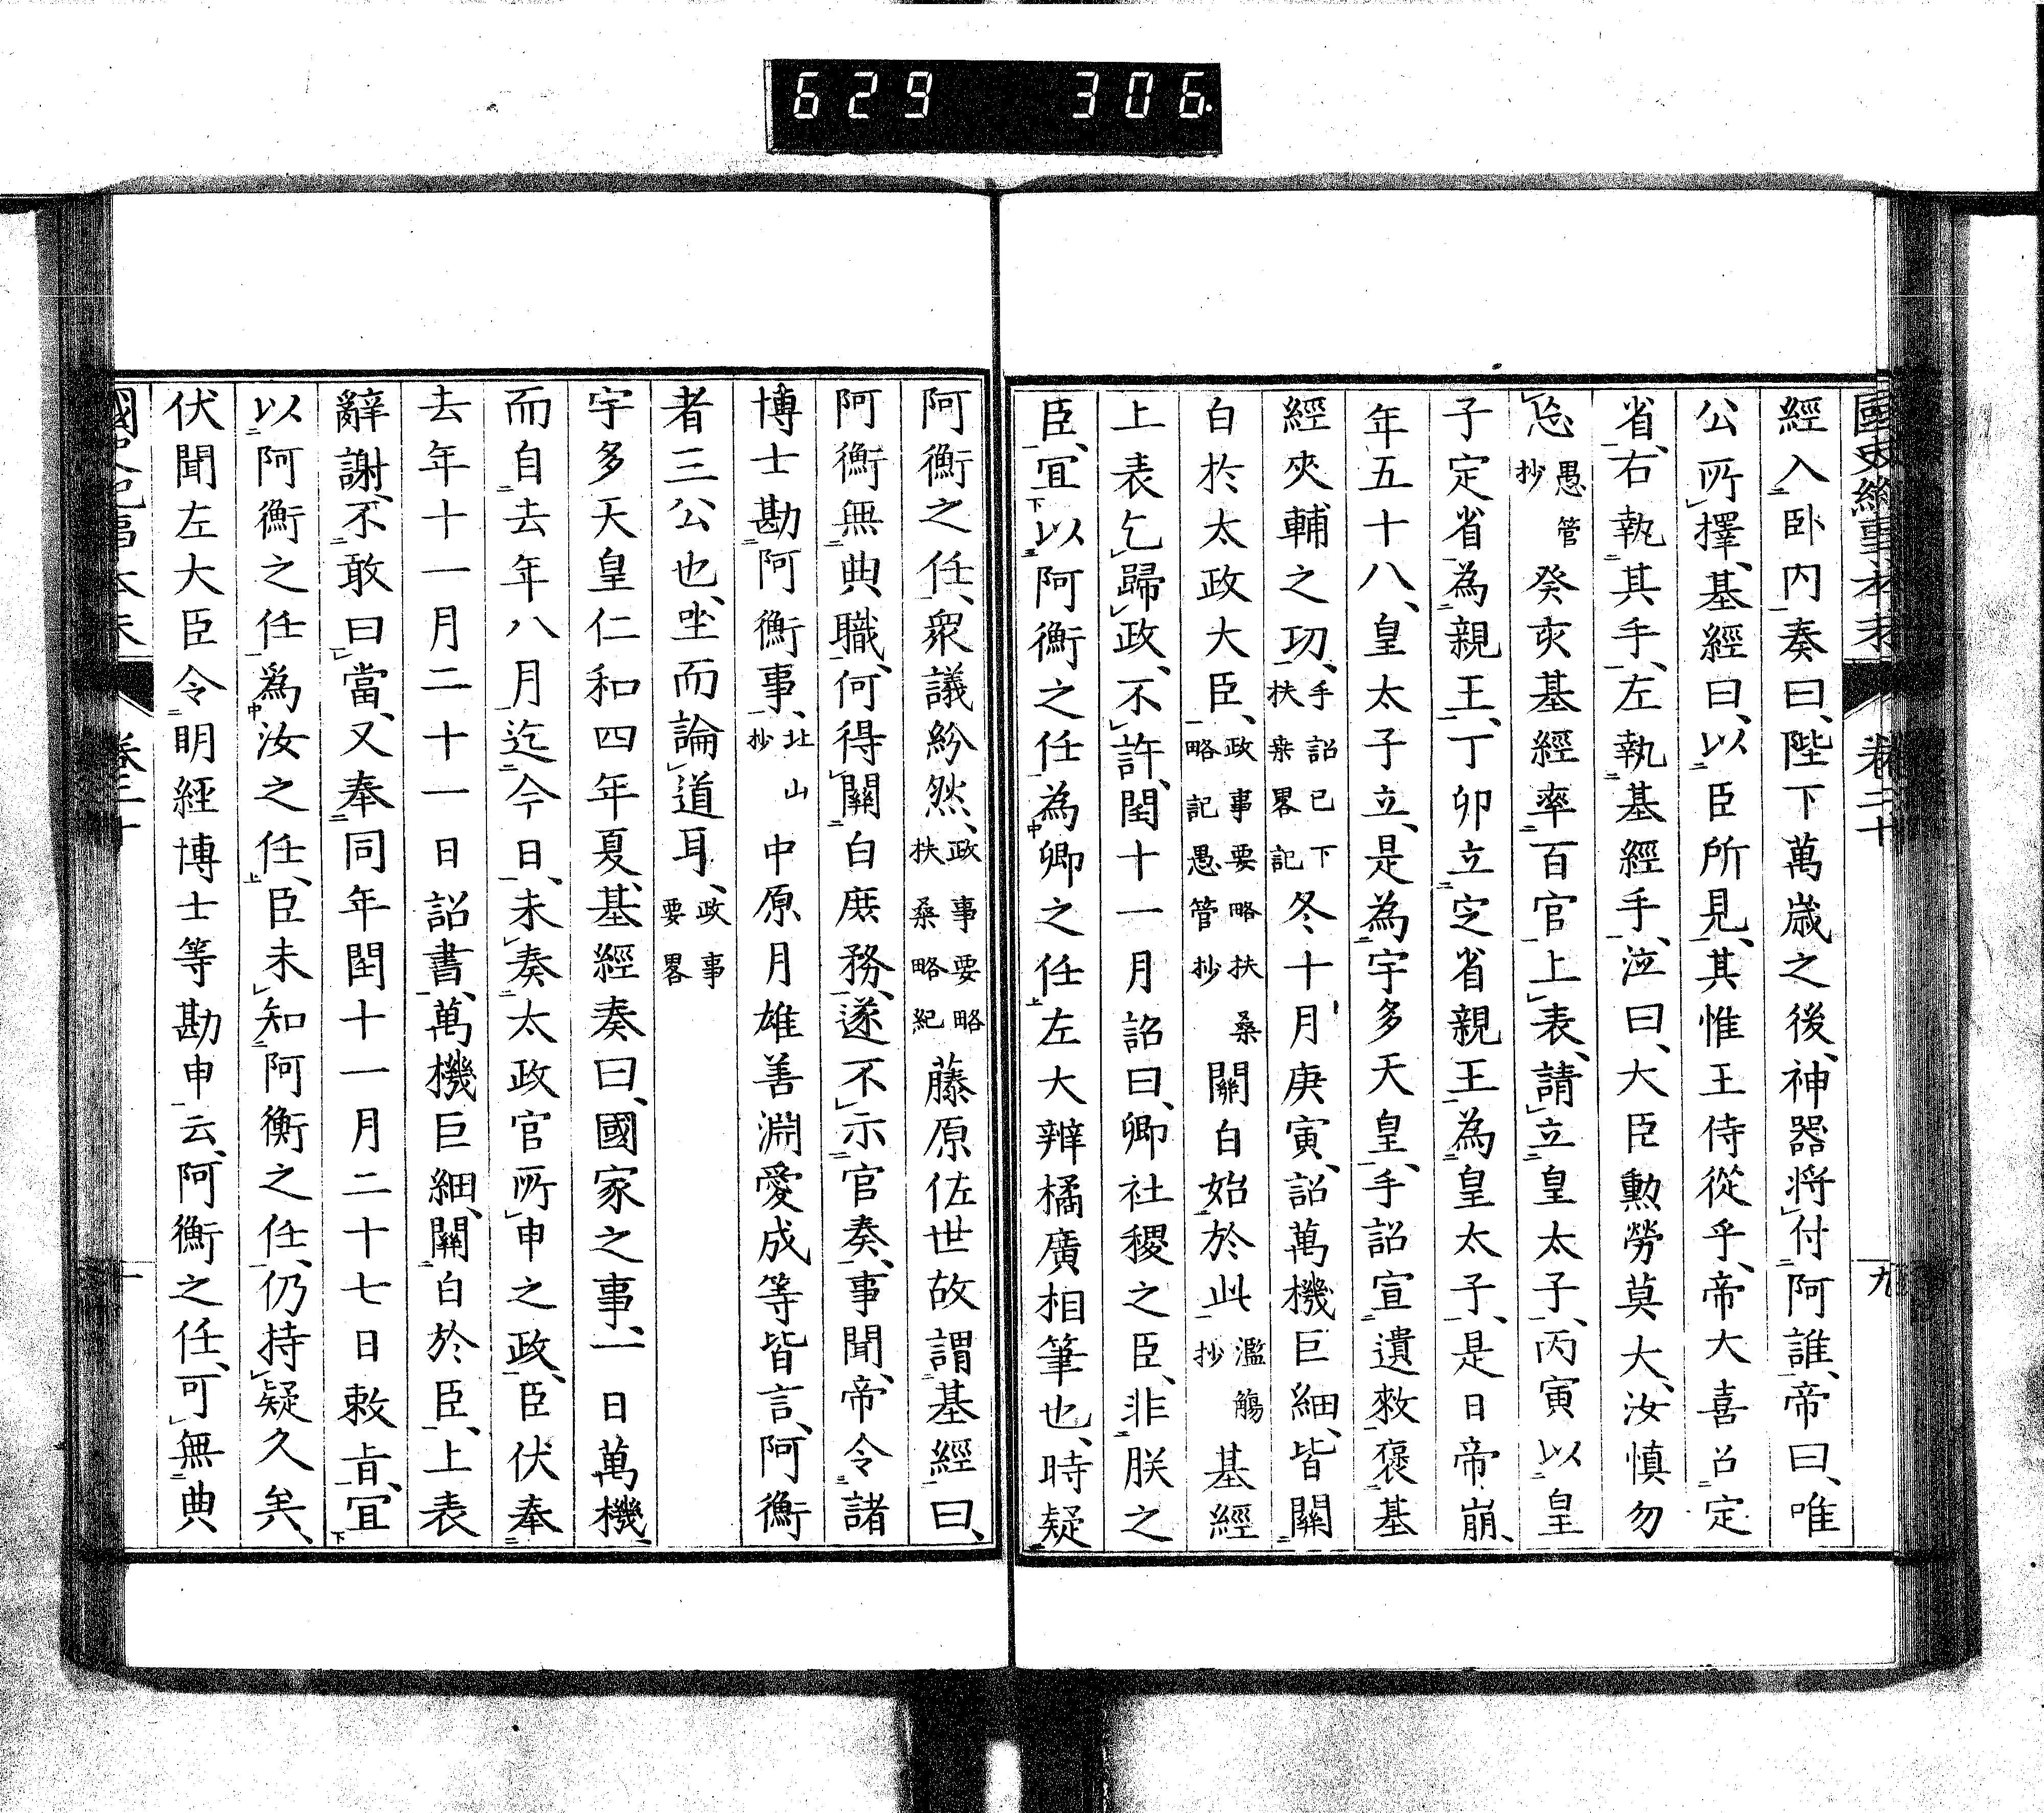 629 306.
國史紀事本末 卷二十 九
經入臥内奏曰、陛下萬歲之後、神器將付阿誰、帝曰、唯
公所擇、基經曰、以臣所見、其惟王侍從乎、帝大喜召定
省、右執其手、左執基經手、泣曰、大臣勲勞莫大、汝慎勿
忘愚管抄癸亥基經率百官上表、請立皇太子、丙寅以皇
子定省為親王、丁卯立定省親王為皇太子、是日帝崩、
年五十八、皇太子立、是為宇多天皇、手詔宣遺敕褒基
經夾輔之功、手詔已下扶桒畧記冬十月庚寅、詔萬機巨細、皆關
白於太政大臣、政事要略扶桑略記愚管抄關白始於此濫觴抄基經
上表乞歸政、不許、閏十一月詔曰、卿社稷之臣、非朕之
臣、宜以阿衡之任為卿之任左大辨橘廣相筆也、時疑
阿衡之任、衆議紛然、政事要略扶桑略紀藤原佐世故謂基經曰、
阿衡無典職、何得關白庶務、遂不示官奏、事聞、帝令諸
博士勘阿衡事、北山抄中原月雄善淵愛成等皆言、阿衡
者三公也、坐而論道耳、政事要畧
宇多天皇仁和四年夏、基經奏曰、國家之事、一日萬機、
而自去年八月迄今日、未奏太政官所申之政、臣伏奉
去年十一月二十一日詔書、萬機巨細、關白於臣、上表
辭謝、不敢曰當、又奉同年閏十一月二十七日敕旨、宜
以阿衡之任為汝之任、臣未知阿衡之任、仍持疑久矣、
伏聞左大臣令明經博士等勘申云、阿衡之任、可無典
國史紀事本末 卷二十 十